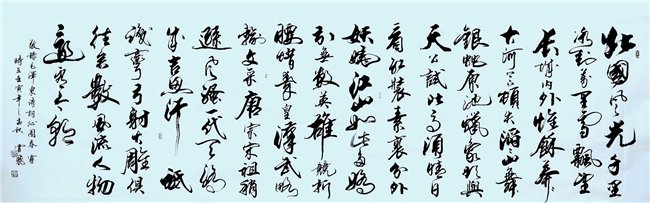 北國風光千里
冰封萬里雪飄望
長城内外惟餘莽
大河上下頓失滔滔山舞
銀蛇原馳蠟象欲與
天公試比高須晴日
看紅裝素裹分外
妖嬈江山如此多嬌
引無數英雄競折
腰惜秦皇漢武略
輸文采唐宗宋祖稍
遜風騷一代天驕
成吉思汗祗
識彎弓射大雕俱
往矣數風流人物
還看今朝
敬錄毛澤東詩詞沁園春雪